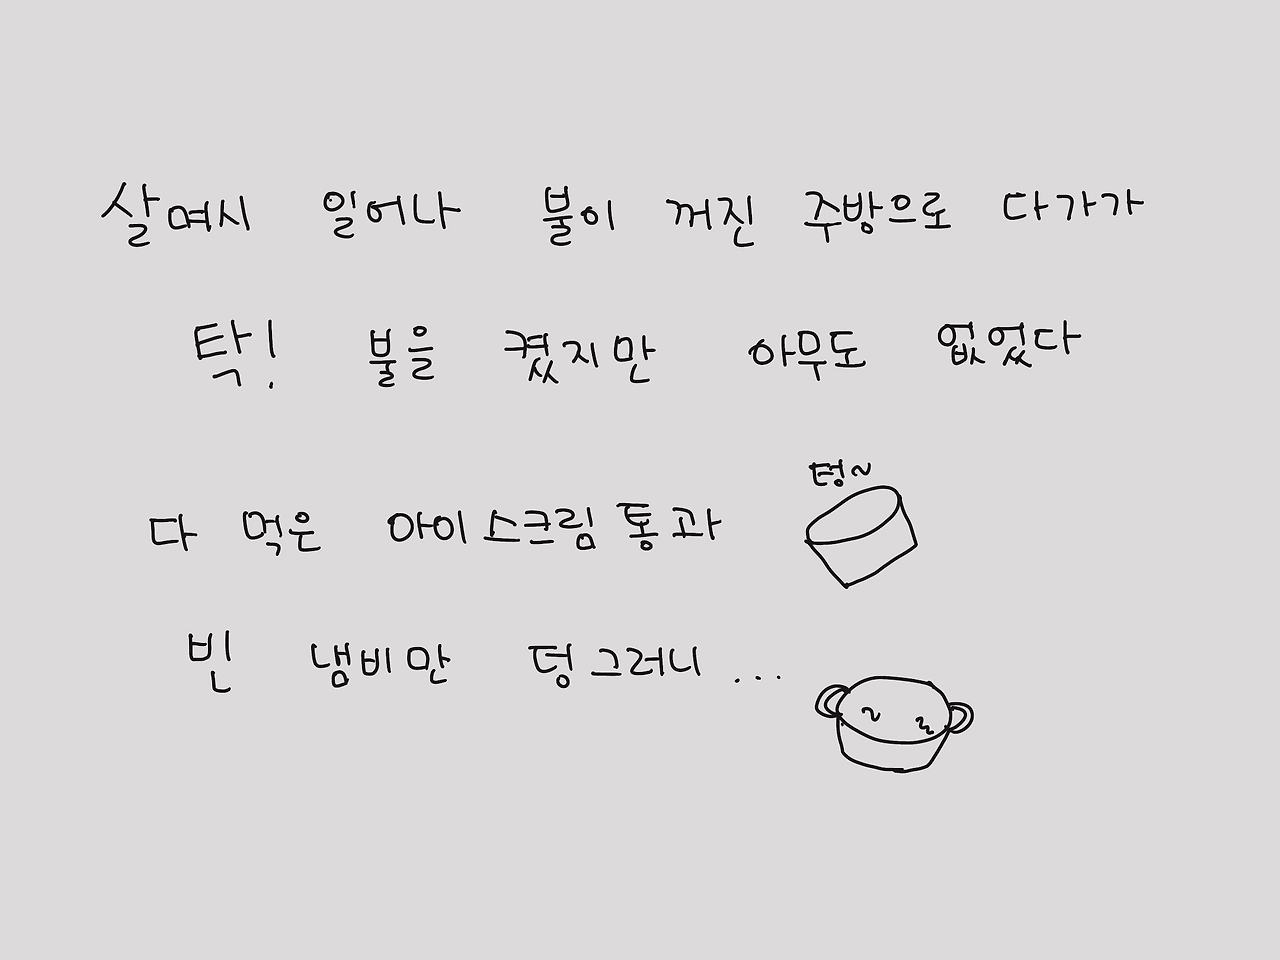 살며시 일어나 불이 꺼진 주방으로 다가가
탁! 불을 켰지만 아무도 없었다
텅~
다 먹은 아이스크림 통과
빈 냄비만 덩그러니...